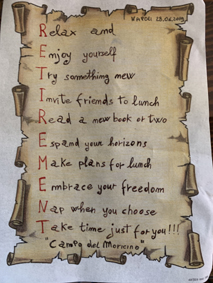 NAPOLI 23.06.2023
Relax and
Enjoy yourself
Try something new
Invite friends to lunch
Read a new book or two
Espand your horizons
Make plans for lunch
Embrace your freedom
Nap when you choose
Take time just for you!!!
"Campo del Moricino"